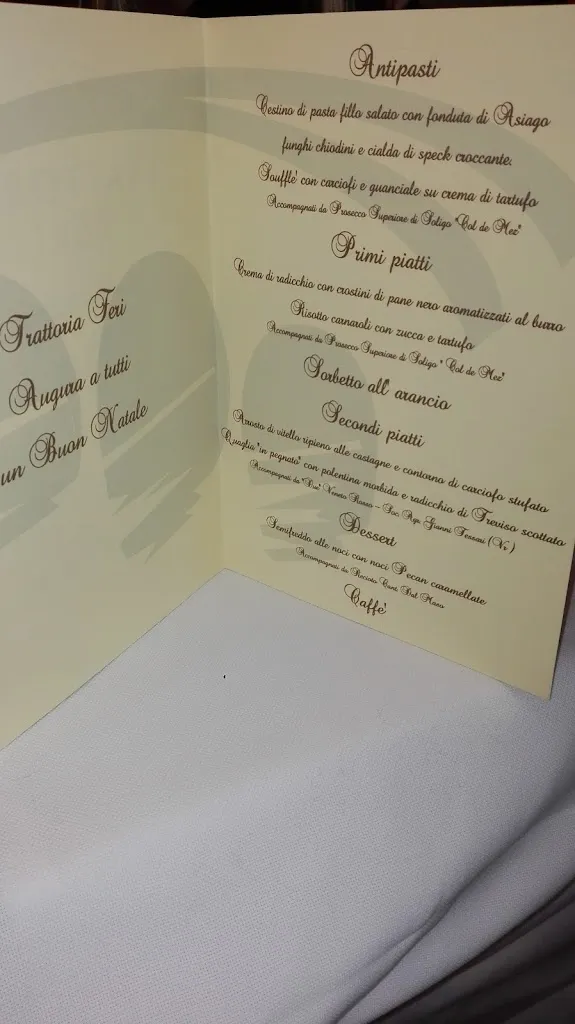 Trattoria Feri
Augura a tutti
un Buon Natale
Antipasti
Cestino di pasta fillo salato con fonduta di Asiago
funghi chiodini e cialda di speck croccante.
Souffle' con carciofi e guanciale su crema di tartufo
Accompagnati da Prosecco Superiore di Soligo "Col de Mez"
Primi piatti
Crema di radicchio con crostini di pane nero aromatizzati al burro
Risotto carnaroli con zucca e tartufo
Accompagnati da Prosecco Superiore di Soligo " Col de Mez"
Sorbetto all' arancio
Secondi piatti
Arrosto di vitello ripieno alle castagne e contorno di carciofo stufato
Quaglia "in pegnato" con polentina morbida e radicchio di Treviso scottato
Accompagnati da "Due" Veneto Rosso – Soc. Agr. Gianni Tessari (Vr)
Dessert
Semifreddo alle noci con noci Pecan caramellate
Accompagnati da Recioto Cant. Dal Maso
Caffe'